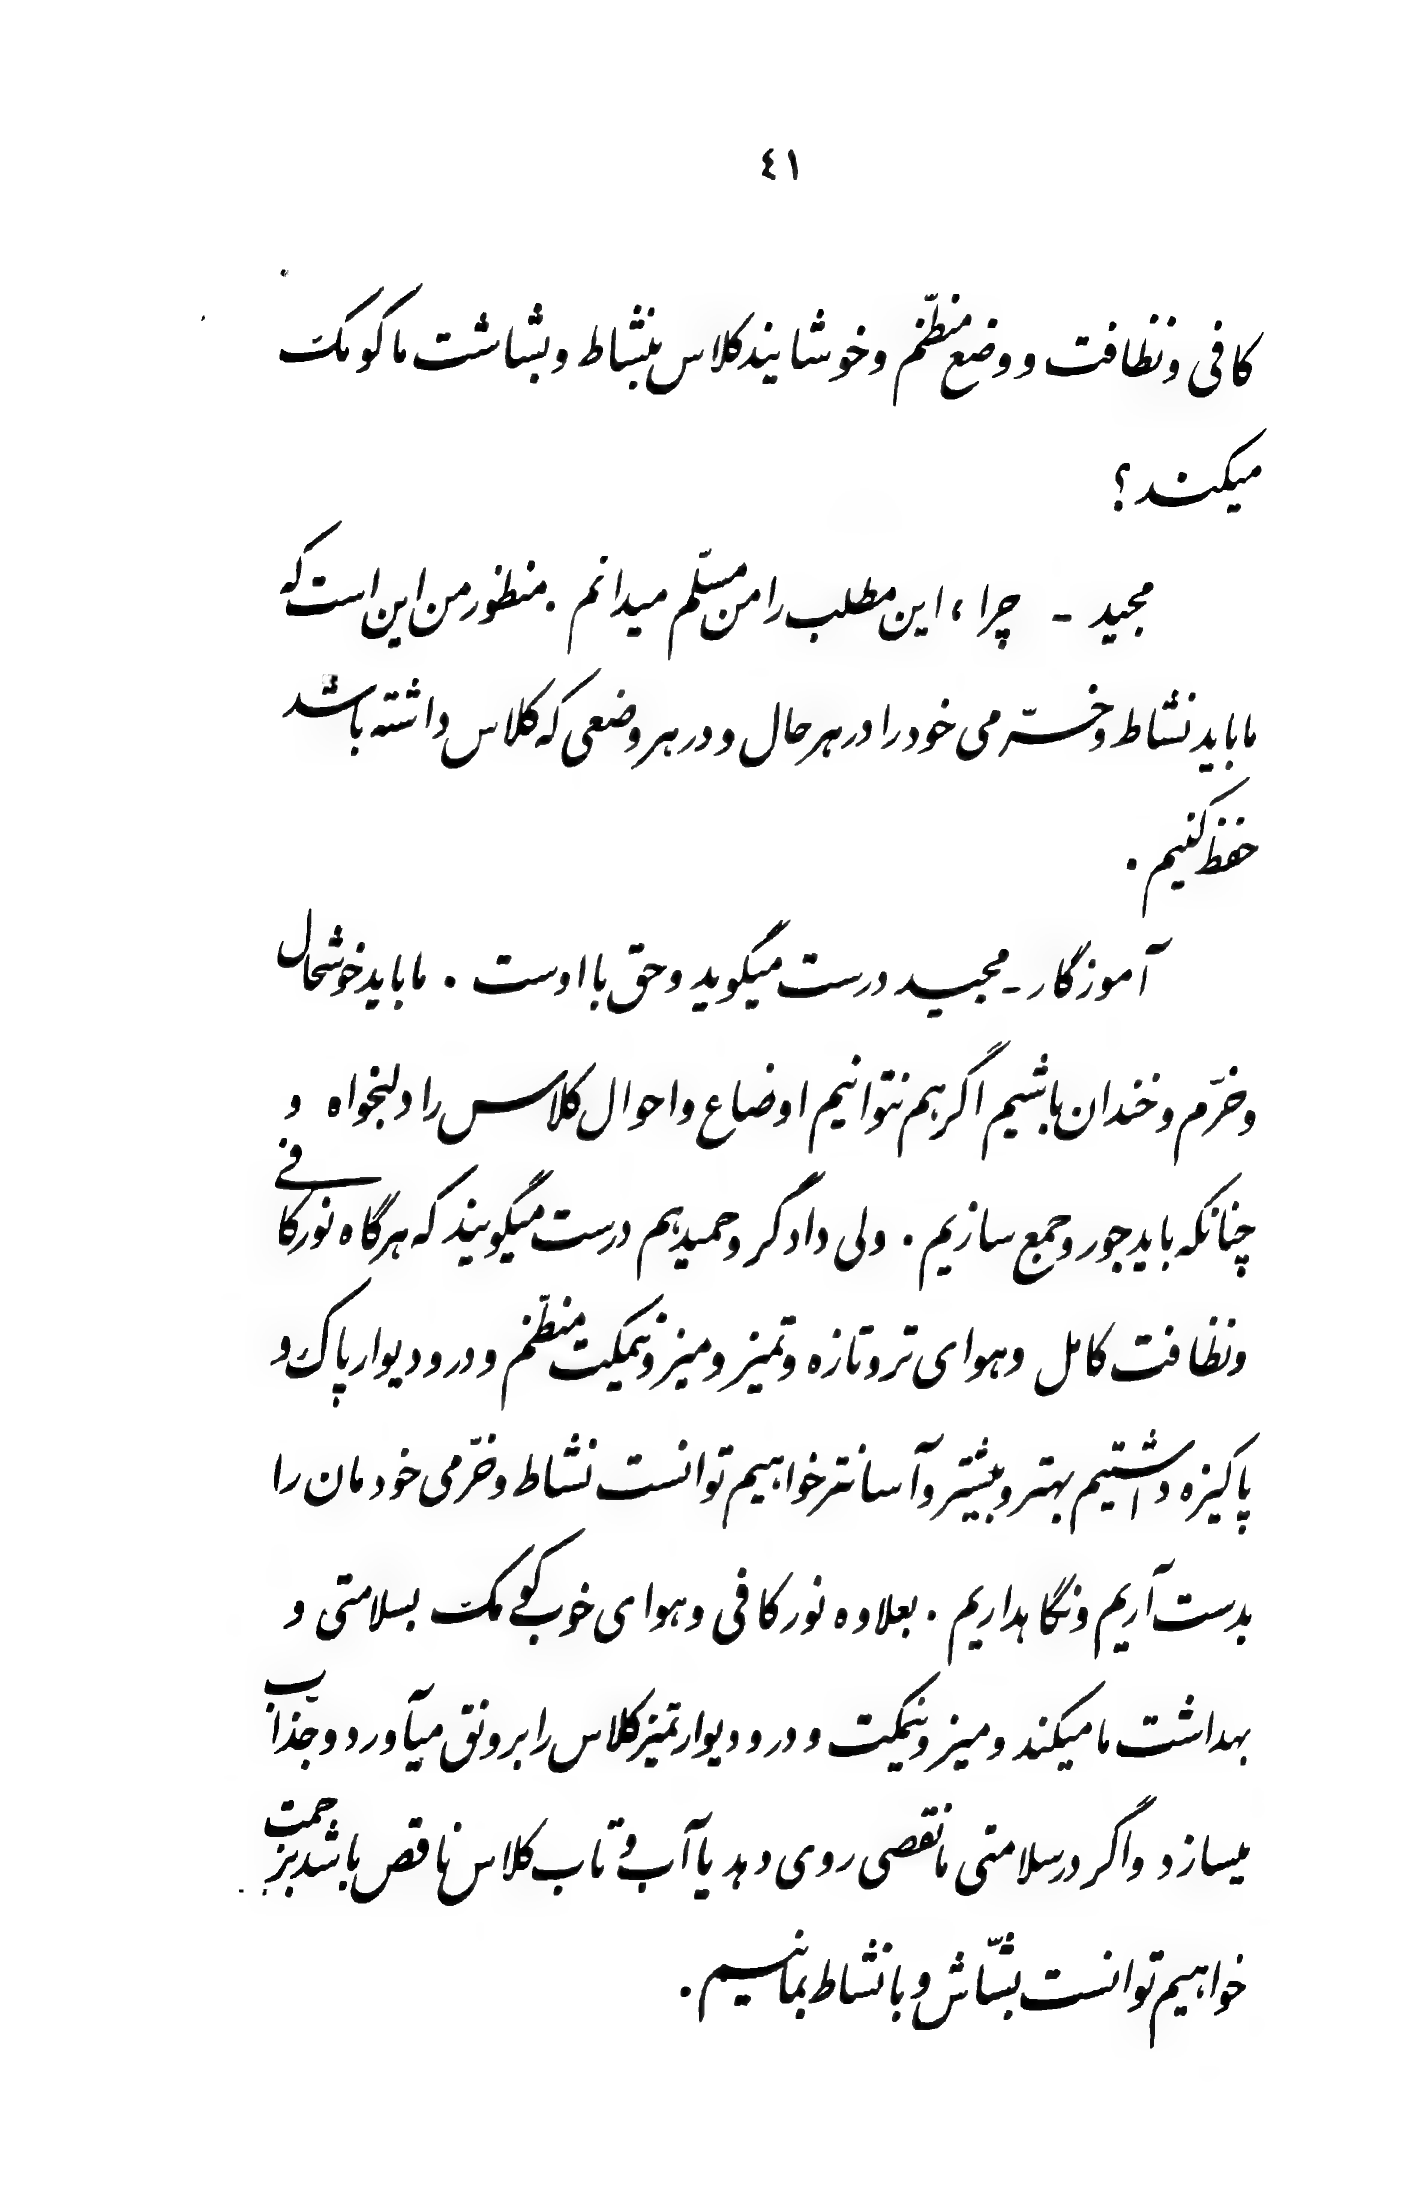 ٤١
کافی و نظافت و وضع منظّم و خوشایند کلاس بنشاط و بشاشت ما کومک
میکند ؟
مجید ـ چرا ، این مطلب را من مسلّم میدانم . منظور من این است که
ما باید نشاط و خرّمی خود را در هر حال و در هر وضعی که کلاس داشته باشد
حفظ کنیم .
آموزگار ـ مجید درست میگوید و حق با اوست . ما باید خوشحال
و خرّم و خندان باشیم اگر هم نتوانیم اوضاع و احوال کلاس را دلبخواه و
چنانکه باید جور و جمع سازیم . ولی دادگر و حمید هم درست میگویند که هر گاه نور کافی
و نظافت کامل و هوای تر و تازه و تمیز و میز و نیمکت منظّم و در و دیوار پاک و
پاکیزه داشتیم بهتر و بیشتر و آسانتر خواهیم توانست نشاط و خرّمی خودمان را
بدست آریم و نگاهداریم . بعلاوه نور کافی و هوای خوب کومک بسلامتی و
بهداشت ما میکند و میز و نیمکت و در و دیوار تمیز کلاس را برونق میآورد و جذّاب
میسازد و اگر در سلامتی ما نقصی روی دهد یا آب و تاب کلاس ناقص باشد بزحمت
خواهیم توانست بشّاش و با نشاط بمانیم .